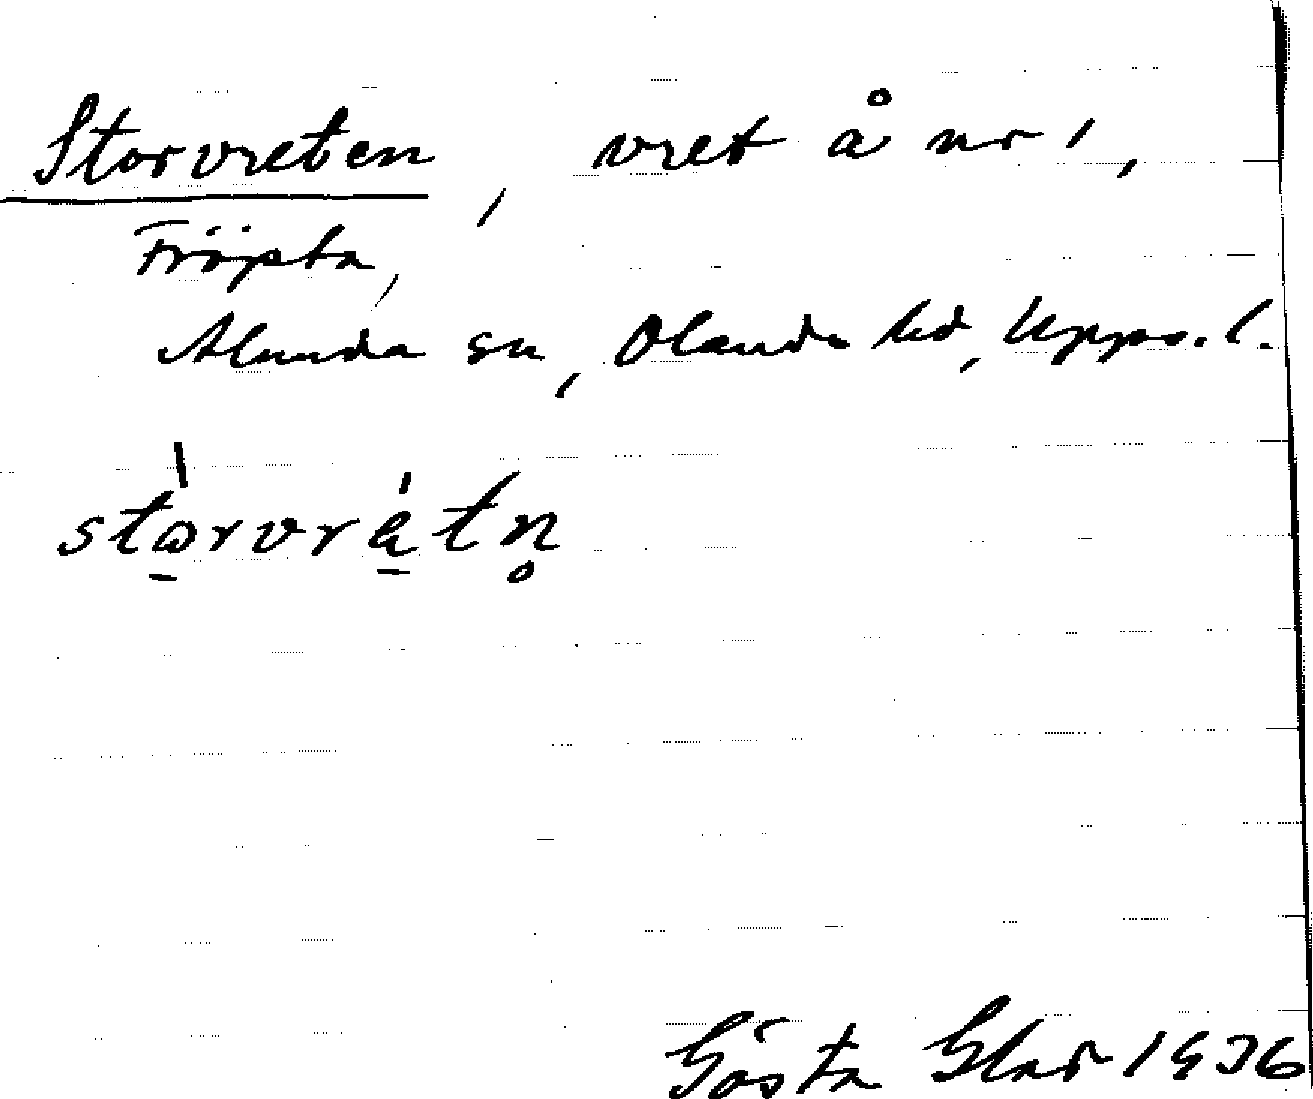 Storvreten, vret å nr 1,
Fröpta,
Alunda sn, Olands hd, Upps. l.
stòrvrétn̥
Gösta 1936